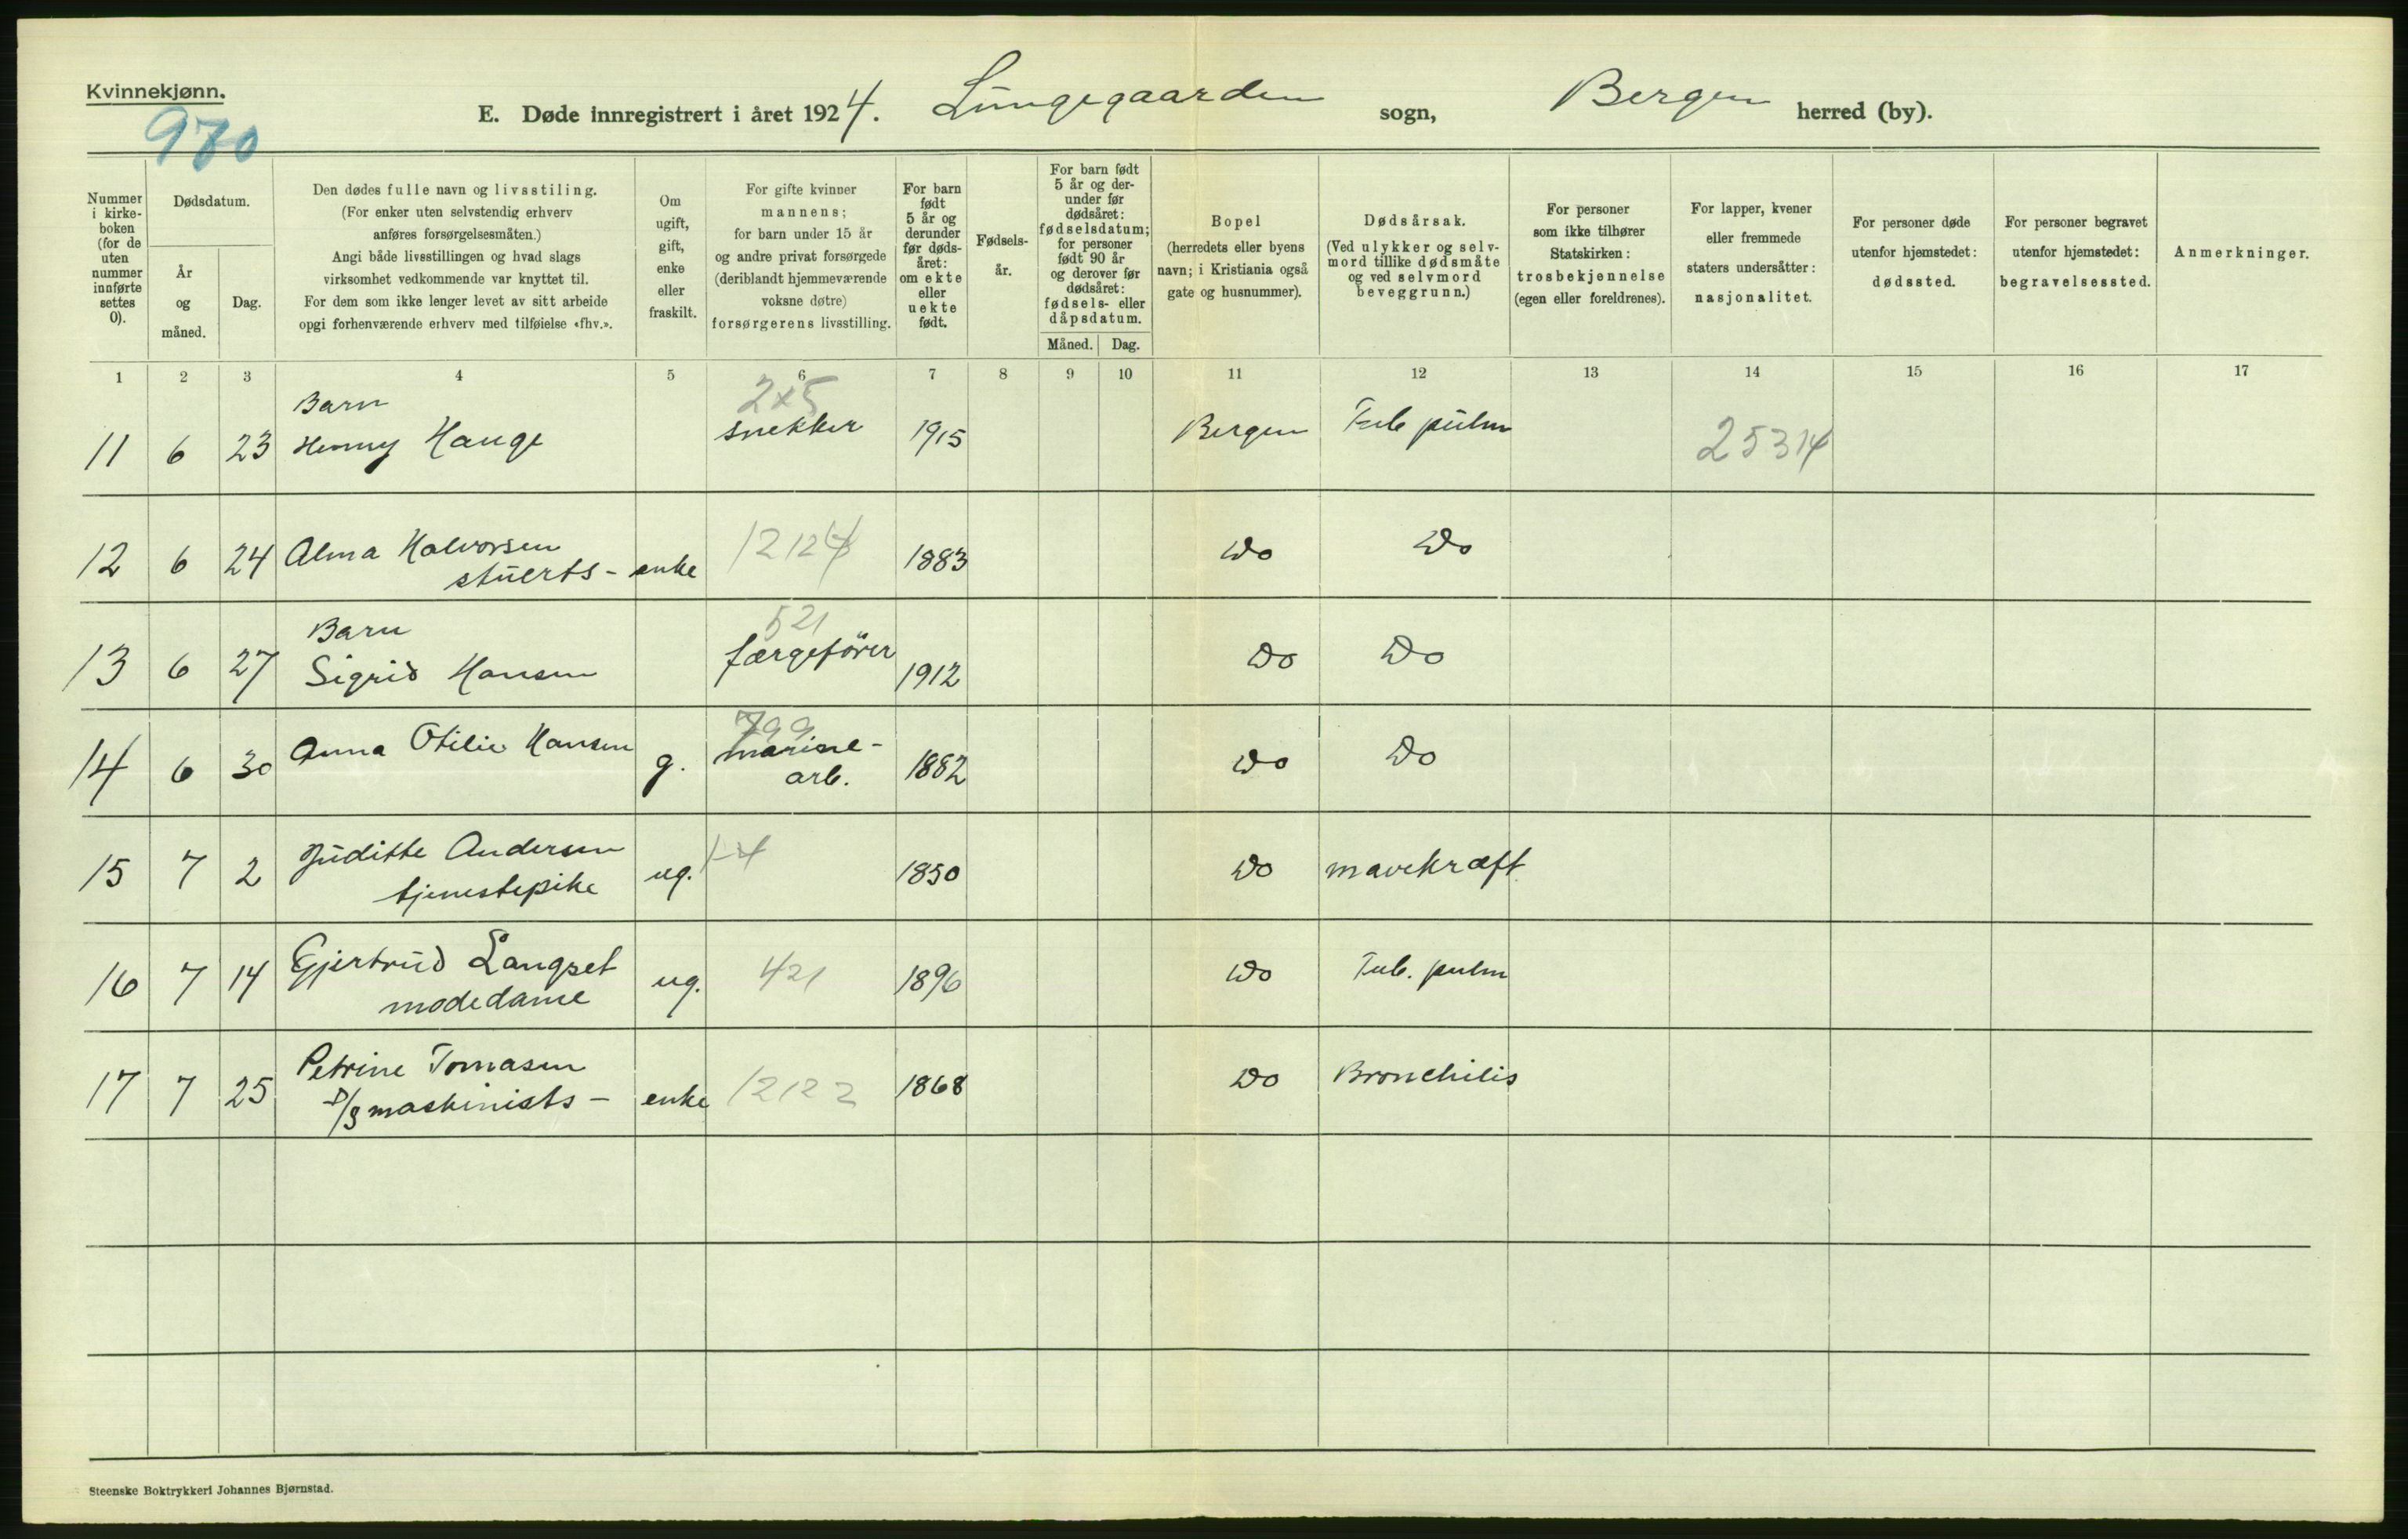 Kvinnekjønn.
970
E. Døde innregistrert i året 1924. Lungegaarden sogn, Bergen herred (by).
Nummer i kirke- boken (for de uten nummer innførte settes 0).
Dødsdatum.
År og måned.
Dag.
Den dødes fulle navn og livsstiling.
(For enker uten selvstendig erhverv
anføres forsørgelsesmåten.)
Angi både livsstillingen og hvad slags
virksomhet vedkommende var knyttet til.
For dem som ikke lenger levet av sitt arbeide
opgi forhenværende erhverv med tilføielse «fhv.».
Om ugift, gift, enke eller fraskilt.
For gifte kvinner
mannens;
for barn under 15 år
og andre privat forsørgede
(deriblandt hjemmeværende
voksne døtre)
forsørgerens livsstilling.
For barn født 5 år og derunder før døds- året: om ekte eller uekte født.
Fødsels- år.
For barn født 5 år og der- under før dødsåret: fødselsdatum; for personer født 90 år og derover før dødsåret: fødsels- eller dåpsdatum.
Måned. Dag.
Bopel
(herredets eller byens
navn; i Kristiania også
gate og husnummer).
Dødsårsak.
(Ved ulykker og selv-
mord tillike dødsmåte
og ved selvmord
beveggrunn.)
For personer
som ikke tilhører
Statskirken:
trosbekjennelse
(egen eller foreldrenes).
For lapper, kvener
eller fremmede
staters undersåtter:
nasjonalitet.
For personer døde
utenfor hjemstedet:
dødssted.
For personer begravet
utenfor hjemstedet:
begravelsessted.
Anmerkninger.
1 2 3 4 5 6 7 8 9 10 11 12 13 14 15 16 17
Barn 2x5
11 6 23 Henny Hauge snekker 1915 Bergen Tub pulm 25314
12 6 24 Alma Halvorsen 1883 Do Do
stuerts- enke
Barn 521
13 6 27 Sigrid Hansen færgefører 1912 Do Do
799
14 6 30 Anna Otilie Hansen g. marine- 1882 Do Do
arb.
15 7 2 Juditte Andersen ug. 1850 Do mavekræft
tjenestepike
16 7 14 Gjertrud Langset ug. 421 1896 Do Tub. pulm
modedame
17 7 25 Petrine Tomasen 12122 1868 Do Bronchitis
D/S maskinists- enke
Steenske Boktrykkeri Johannes Bjørnstad.